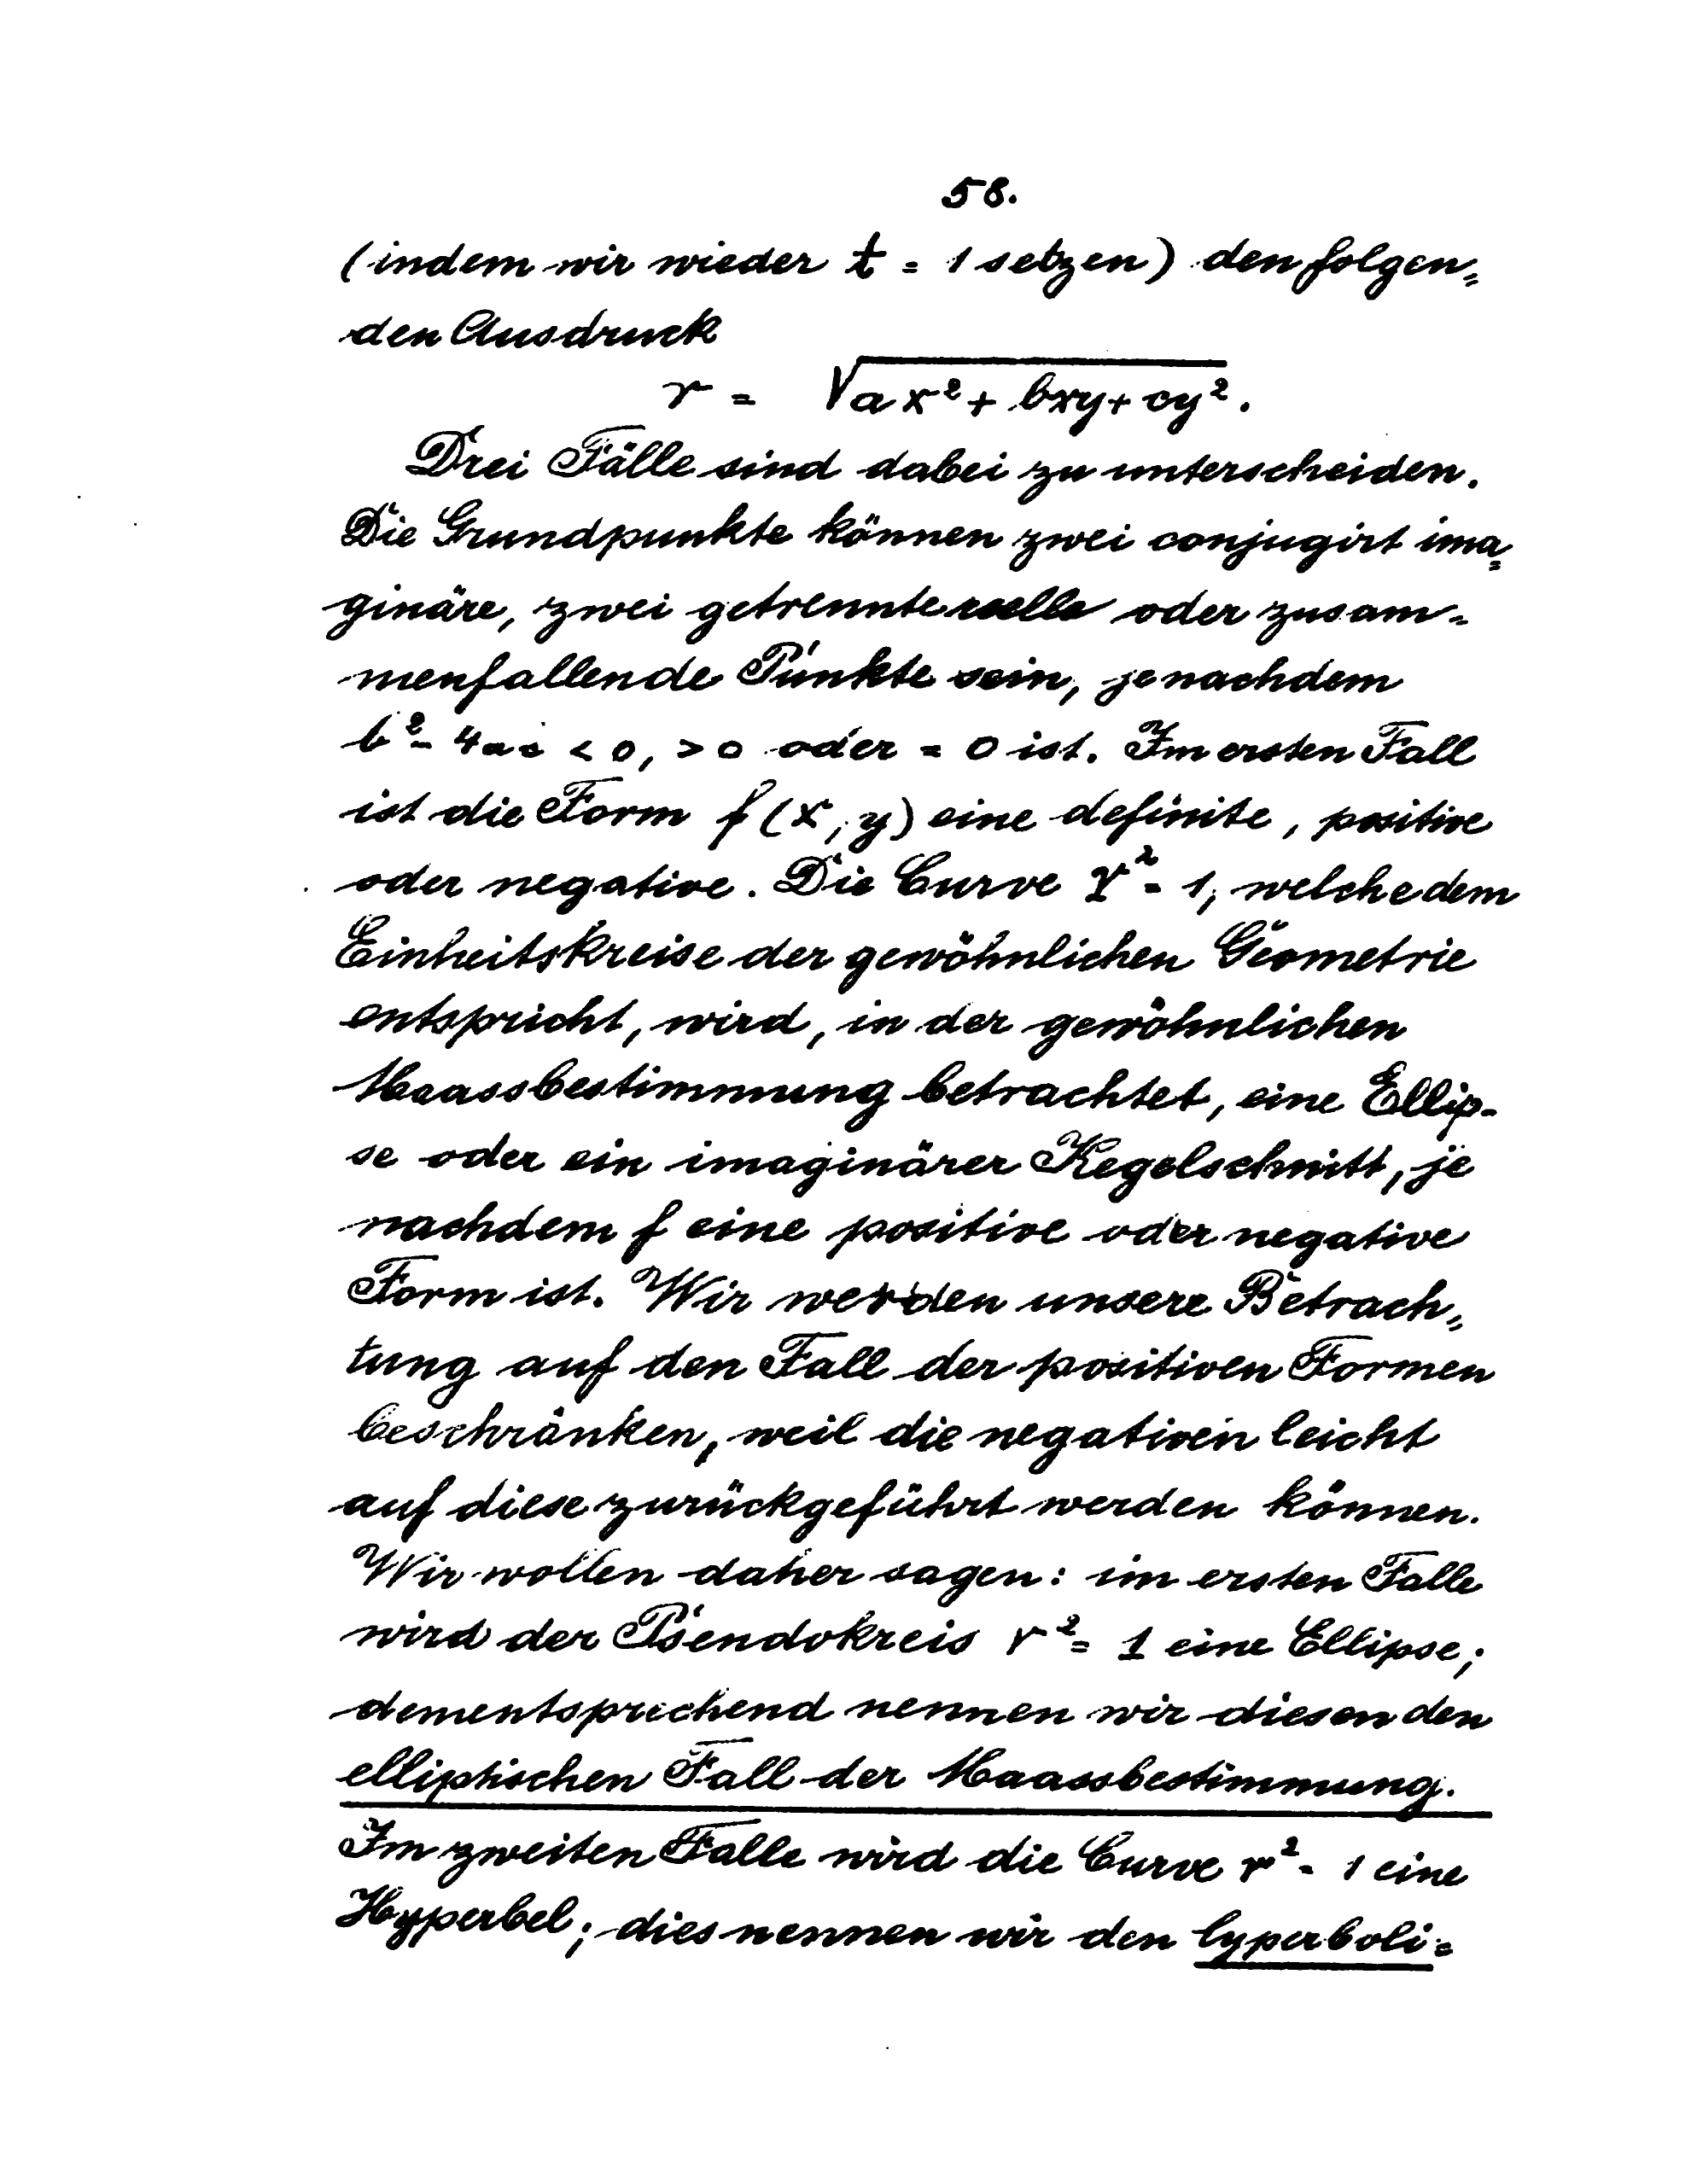 58.
(indem wir wieder t = 1 setzen) den folgen=
den Ausdruck
r = √ax² + bxy + cy².
Drei Fälle sind dabei zu unterscheiden.
Die Grundpunkte können zwei conjugirt ima=
ginäre, zwei getrennte reelle oder zusam-
menfallende Punkte sein, je nachdem
b² - 4ac < 0, > 0 oder = 0 ist. Im ersten Fall
ist die Form f (x, y) eine definite, positive
oder negative. Die Curve r² = 1, welche dem
Einheitskreise der gewöhnlichen Geometrie
entspricht, wird, in der gewöhnlichen
Maassbestimmung betrachtet, eine Ellip-
se oder ein imaginärer Kegelschnitt, je
nachdem f eine positive oder negative
Form ist. Wir werden unsere Betrach=
tung auf den Fall der positiven Formen
beschränken, weil die negativen leicht
auf diese zurückgeführt werden können.
Wir wollen daher sagen: im ersten Falle
wird der Pseudokreis r² = 1 eine Ellipse;
dementsprechend nennen wir diesen den
elliptischen Fall der Maassbestimmung.
Im zweiten Falle wird die Curve r² = 1 eine
Hyperbel; dies nennen wir den hyperboli=